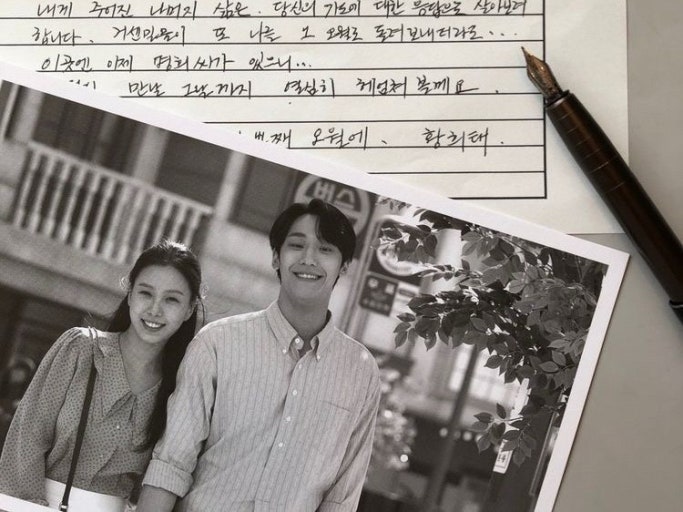 내게 주어진 나머지 삶은. 당신의 기도에 대한 응답으로 살아보려
합니다. 거센밀물이 또 나를 그 오월로 돌려보내더라도...
이곳엔 이제 명희씨가 있으니...
만날 그날까지 열심히 헤엄쳐볼께요.
번째 오월에. 황희태.
버스